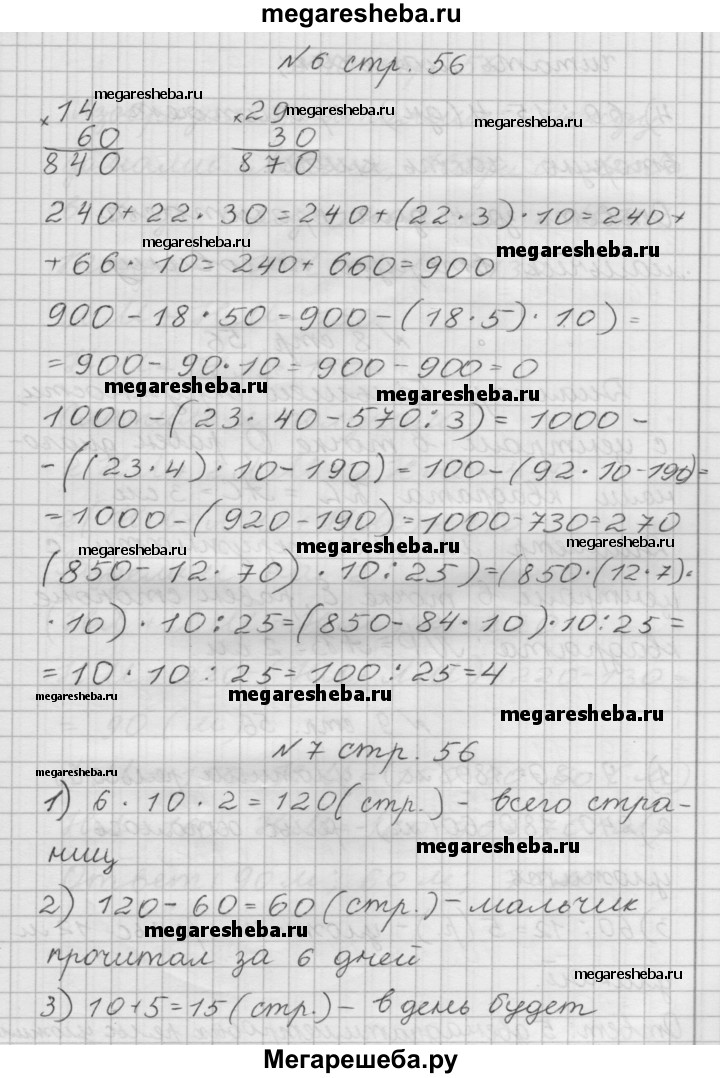 megaresheba.ru
N6 стр. 56
× 14 megaresheba.ru × 29 megaresheba.ru
60 30 megaresheba.ru
840 870
240 + 22 · 30 = 240 + (22 · 3) · 10 = 240 +
megaresheba.ru megaresheba.ru
+ 66 · 10 = 240 + 660 = 900
900 - 18 · 50 = 900 - (18 · 5) · 10) =
= 900 - 90 · 10 = 900 - 900 = 0
megaresheba.ru megaresheba.ru
1000 - (23 · 40 - 570 : 3) = 1000 -
- ((23 · 4) · 10 - 190) = 100 - (92 · 10 - 190) =
= 1000 - (920 - 190) = 1000 - 730 = 270
megaresheba.ru megaresheba.ru megaresheba.ru
(850 - 12 · 70) · 10 : 25) = (850 · (12 · 7) ·
· 10) · 10 : 25 = (850 - 84 · 10) · 10 : 25 =
= 10 · 10 : 25 = 100 : 25 = 4
megaresheba.ru megaresheba.ru
megaresheba.ru
N7 стр. 56
megaresheba.ru
1) 6 · 10 · 2 = 120 (стр.) - всего стра-
ниц megaresheba.ru
2) 120 - 60 = 60 (стр.) - мальчик
megaresheba.ru
прочитал за 6 дней
megaresheba.ru
3) 10 + 5 = 15 (стр.) - в день будет
Мегарешеба.ру